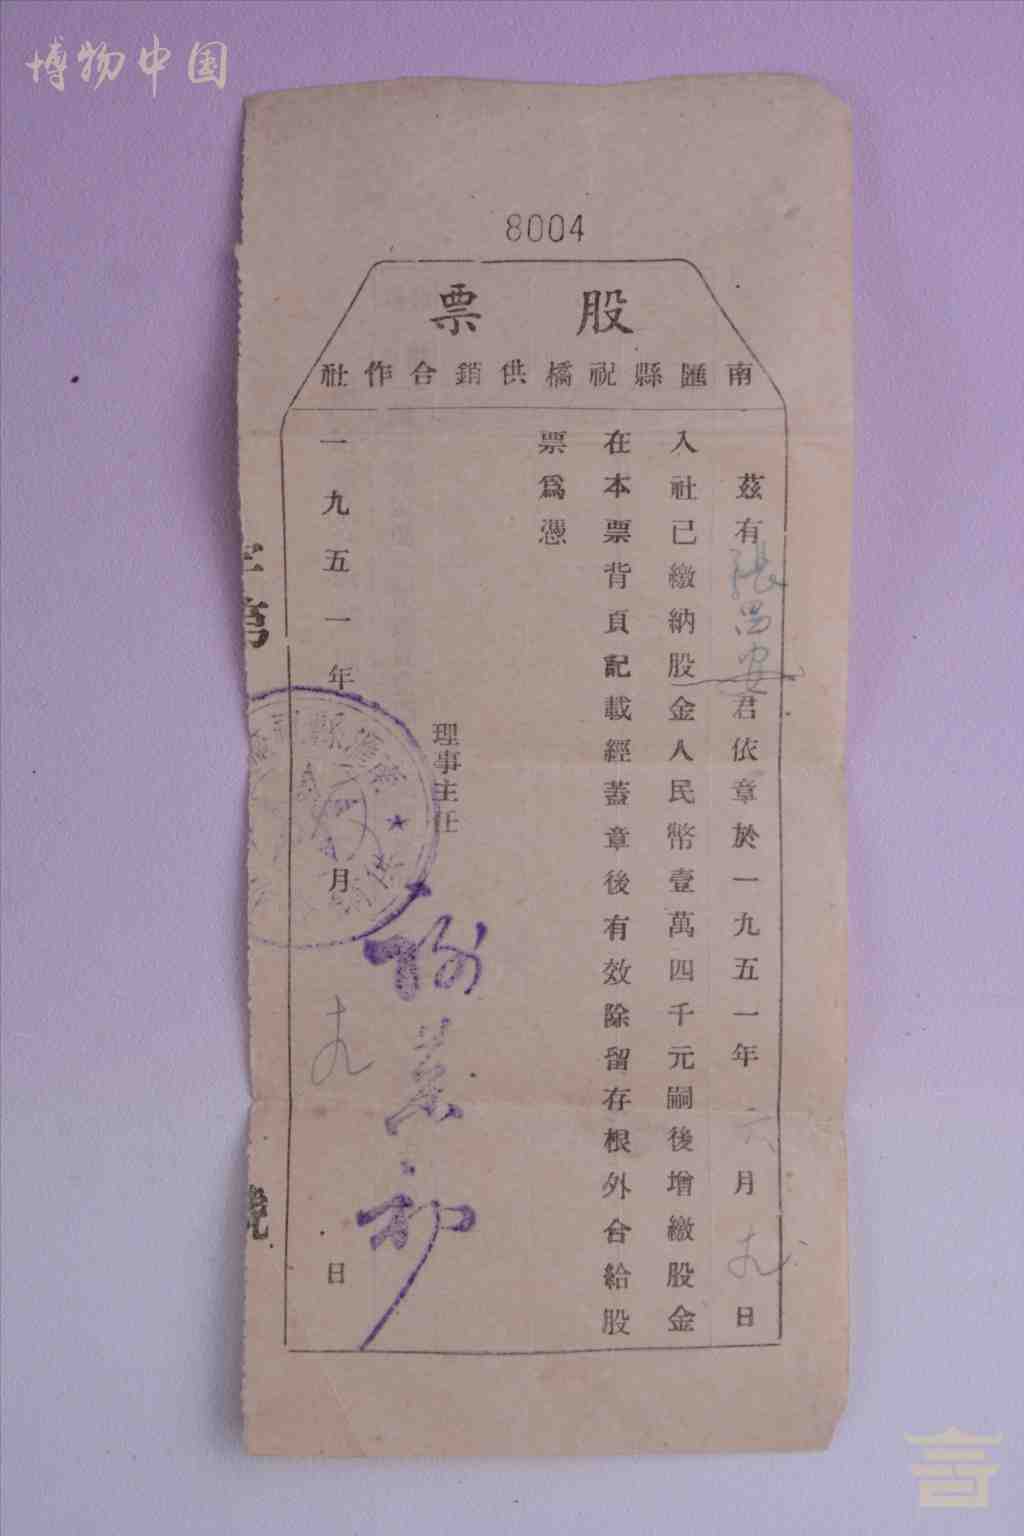 博物中国
8004
股票
南匯縣祝橋供銷合作社
茲有張呂安君依章於一九五一年六月九日
入社已繳納股金人民幣壹萬四千元嗣後增繳股金
在本票背頁記載經蓋章後有效除留存根外合給股
票爲憑
理事主任
一九五一年 月 日
字第 號